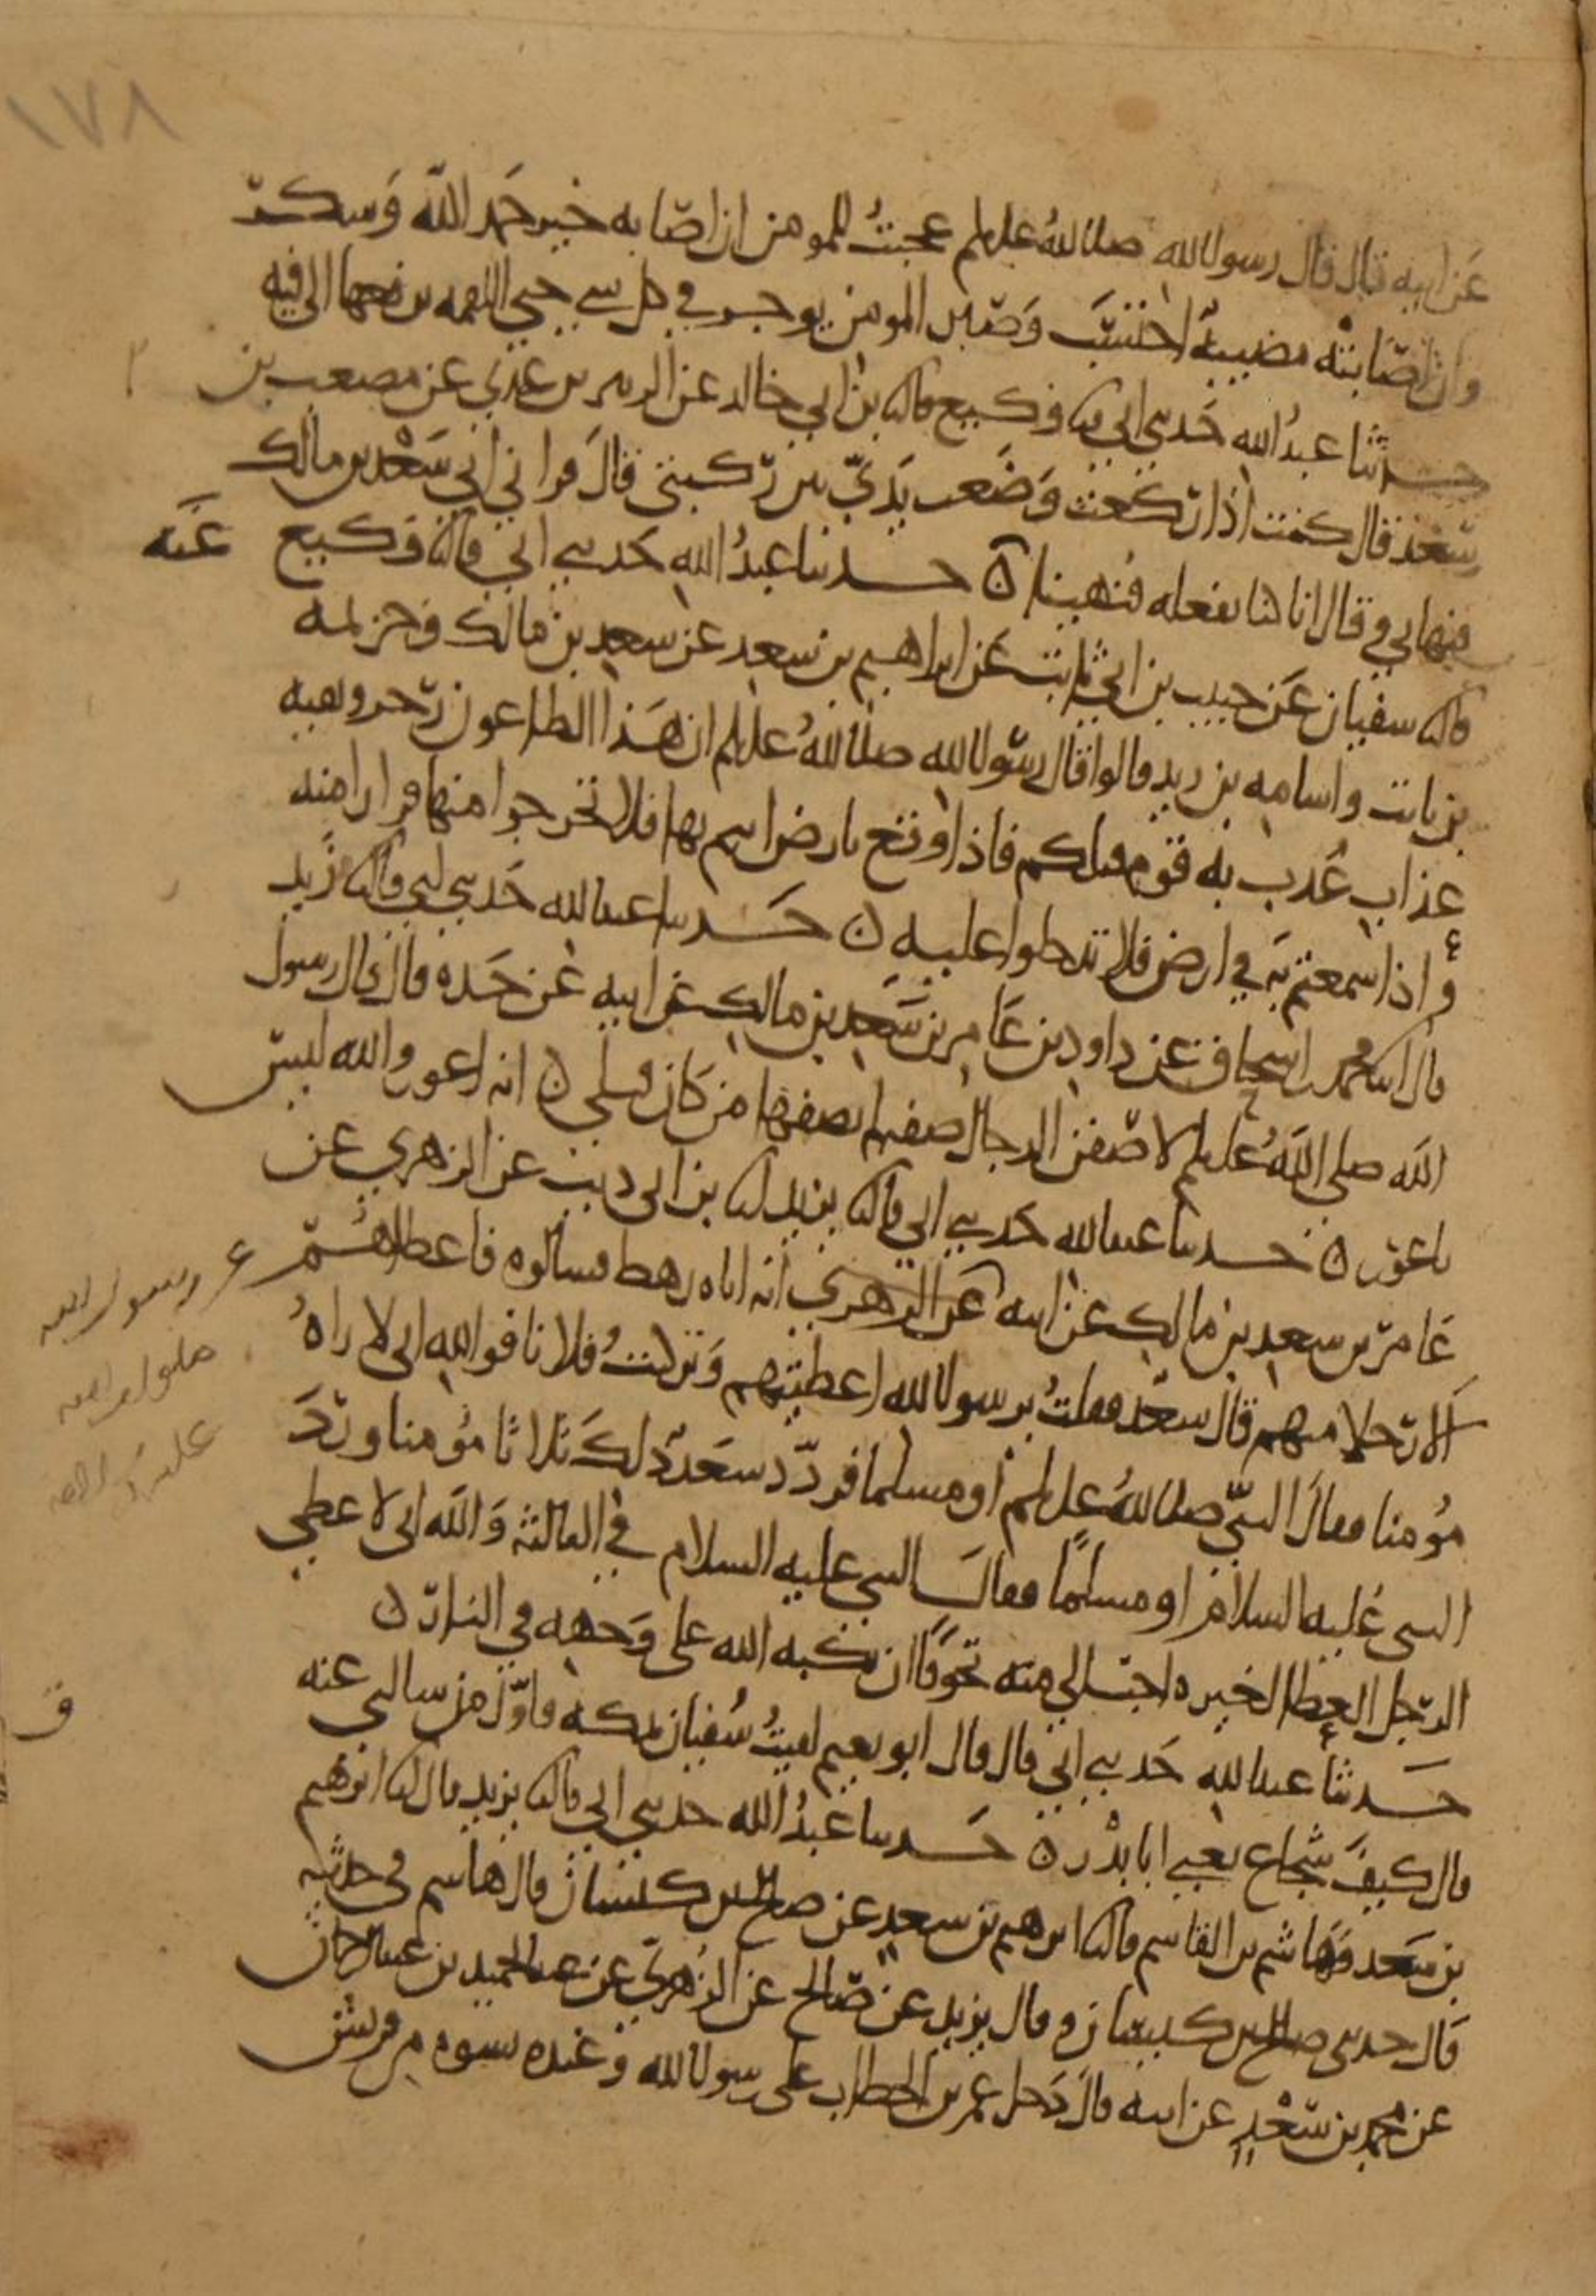 ١٧٨
عن ابيه قال قال رسول الله صلى الله عليه وسلم عجبت للمومن ان اصابه خير حمد الله وشكر
وان اصابته مصيبة احتسب وصبر المومن يوجر في كل شي حتى اللقمه يرفعها الى فيه
حدثنا عبد الله حدثني ابي ثنا وكيع قال ثنا بن ابي خالد عن الزبير بن عدي عن مصعب بن
سعد قال كنت اذا ركعت وضعت يدي بين ركبتي قال فراني ابي سعد بن مالك
فنهاني وقال انا كنا نفعله فنهينا عنه ن حدثنا عبد الله حدثني ابي قال ثنا وكيع
قال ثنا سفيان عن حبيب بن ابي ثابت عن ابراهيم بن سعد عن سعد بن مالك وخزيمه
بن ثابت واسامه بن زيد قالوا قال رسول الله صلى الله عليه وسلم ان هذا الطاعون رجز وبقيه
عذاب عذب به قوم قبلكم فاذا وقع بارض وانتم بها فلا تخرجوا منها فرارا منه
واذا سمعتم به في ارض فلا تدخلوا عليه ن حدثنا عبد الله حدثني ابي قال ثنا يزيد
قال انا محمد بن اسحاق عن داود بن عامر بن سعد بن مالك عن ابيه عن جده قال قال رسول
الله صلى الله عليه وسلم لاصفن الدجال صفة لم يصفها من كان قبلي ن انه اعور والله ليس
باعور ن حدثنا عبد الله حدثني ابي قال ثنا يزيد انا بن ابي ذيب عن الزهري عن
عامر بن سعد بن مالك عن ابيه عن الزهري انه اتاه رهط فسالوه فاعطاهم
الا رجلا منهم قال سعد فقلت يرسول الله اعطيتهم وتركت فلانا فوالله اني لاراه
مؤمنا فقال النبي صلى الله عليه وسلم او مسلما فردد سعد ذلك ثلاثا مؤمنا ورد
النبي عليه السلام او مسلما فقال النبي عليه السلام في الثالثة والله اني لاعطي
الرجل العطا لغيره احب الي منه تخوفا ان يكبه الله على وجهه في النار ن
حدثنا عبد الله حدثني ابي قال قال ابو نعيم لقيت سفيان بمكه فاول من سالني عنه
قال كيف شجاع يعني ابا بدر ن حدثنا عبد الله حدثني ابي قال ثنا يزيد قال انا ابرهيم
بن سعد وهاشم بن القاسم قال ثنا ابرهيم بن سعد عن صالح بن كيسان قال هاشم في حديثه
قال حدثني صالح بن كيسان وقال يزيد عن صالح عن الزهري عن عبد الحميد بن عبد الرحمن
عن محمد بن سعد عن ابيه قال دخل عمر بن الخطاب على رسول الله وعنده نسوه من قريش
عن رسول الله
صلى الله
عليه